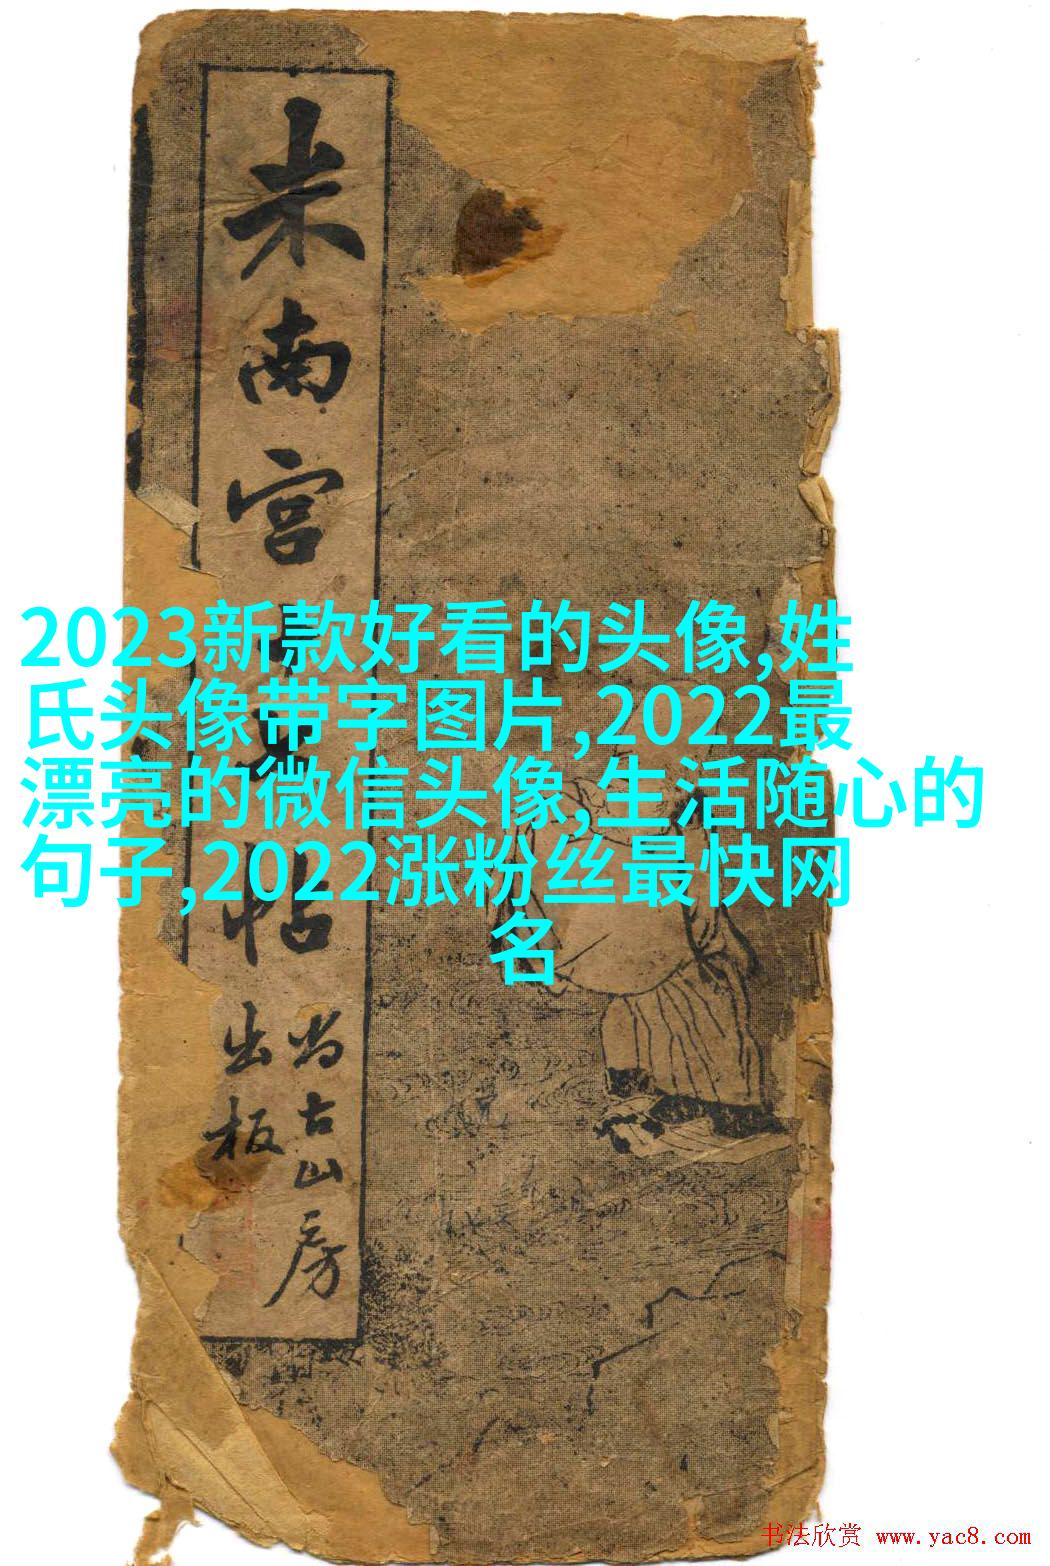 米南宫
帖
尚古山房
出板
2023新款好看的头像,姓
氏头像带字图片,2022最
漂亮的微信头像,生活随心的
句子,2022涨粉丝最快网
名
书法欣赏 www.yac8.com